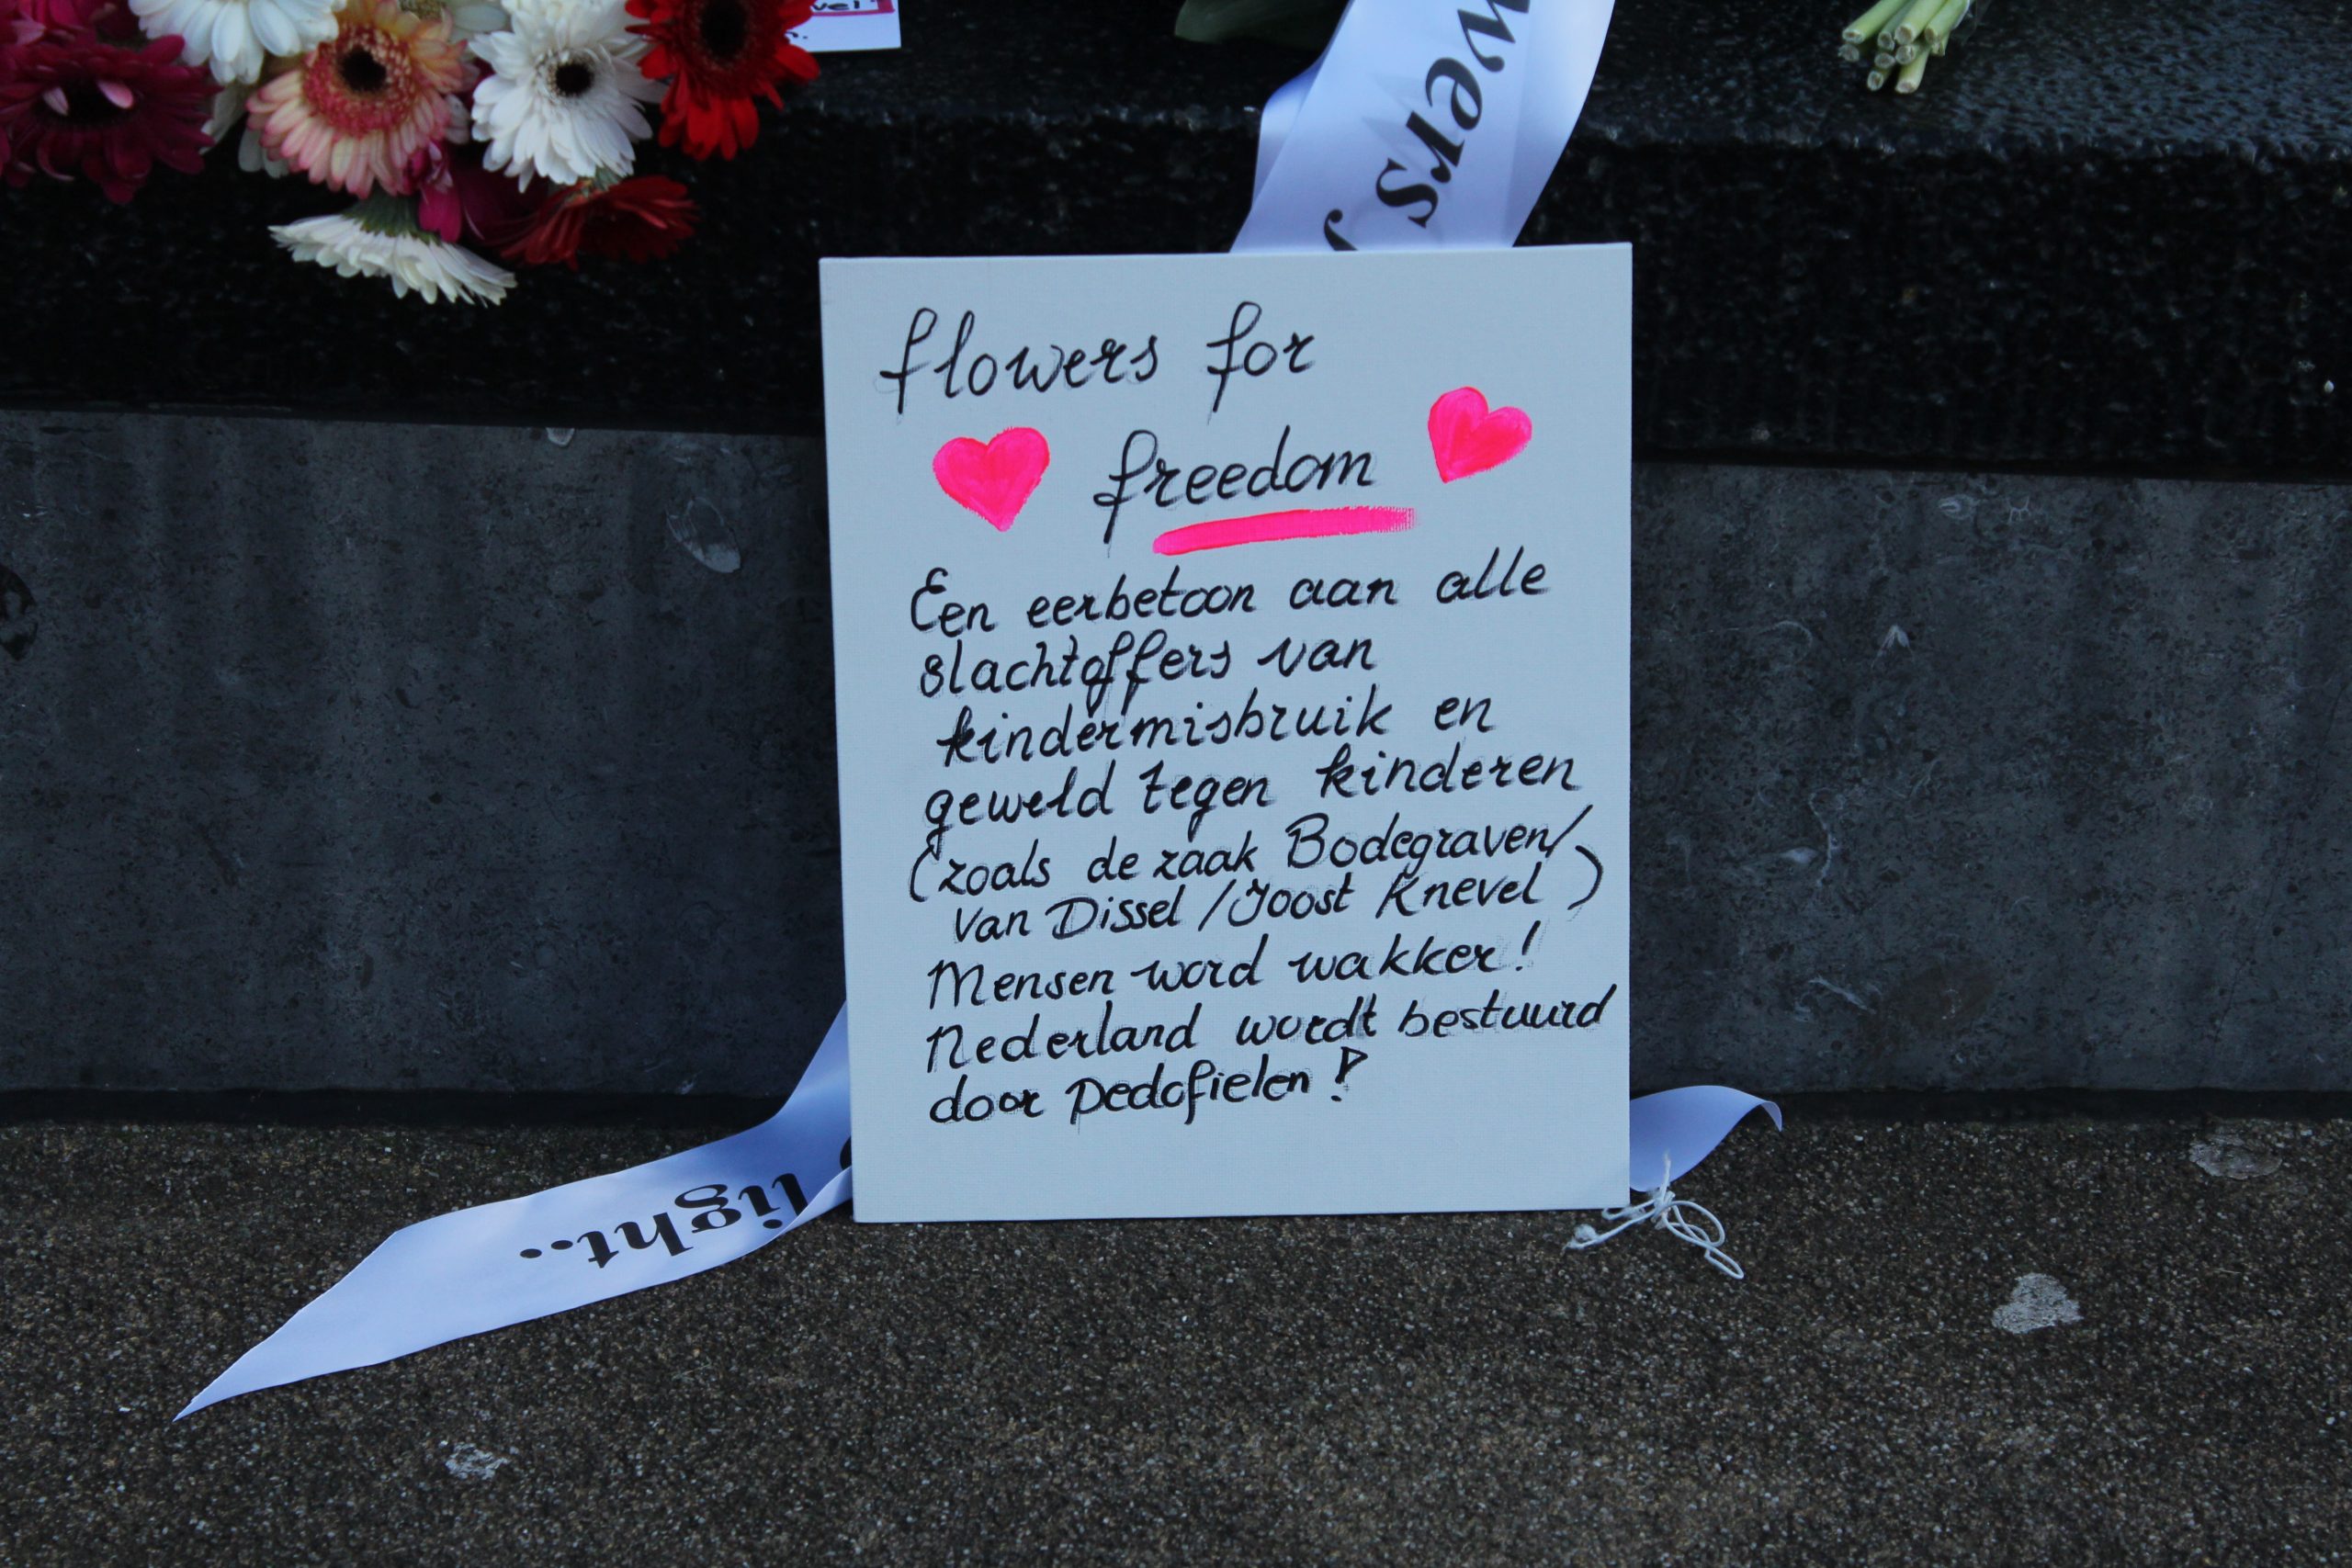 vel"
wers f
flowers for
freedom
Een eerbetoon aan alle
slachtoffers van
kindermisbruik en
geweld tegen kinderen
(zoals de zaak Bodegraven/
Van Dissel/Joost Knevel)
Mensen word wakker!
Nederland wordt bestuurd
door pedofielen!
light..